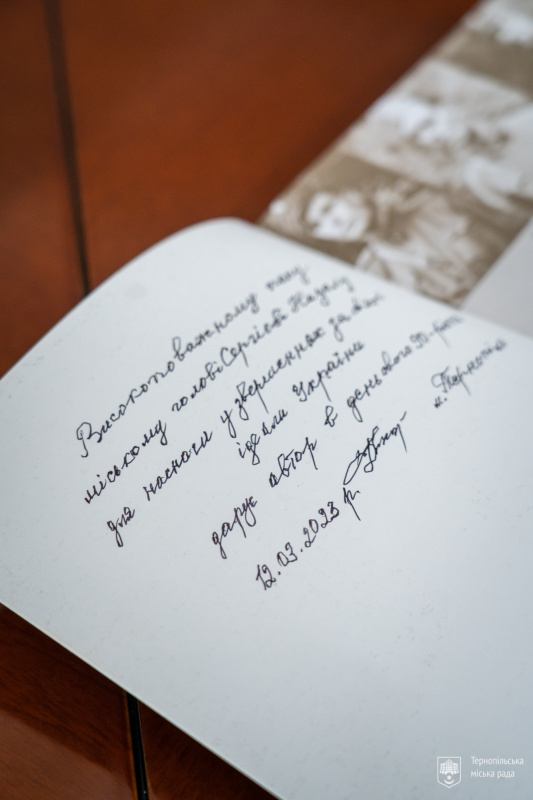 Високоповажному пану
міському голові Сергієві Надалу
для наснаги у звершеннях за для
ідеали України
дарує автор в день свого 90-ліття
12.03.2023 р.
м. Тернопіль
Тернопільська
міська рада